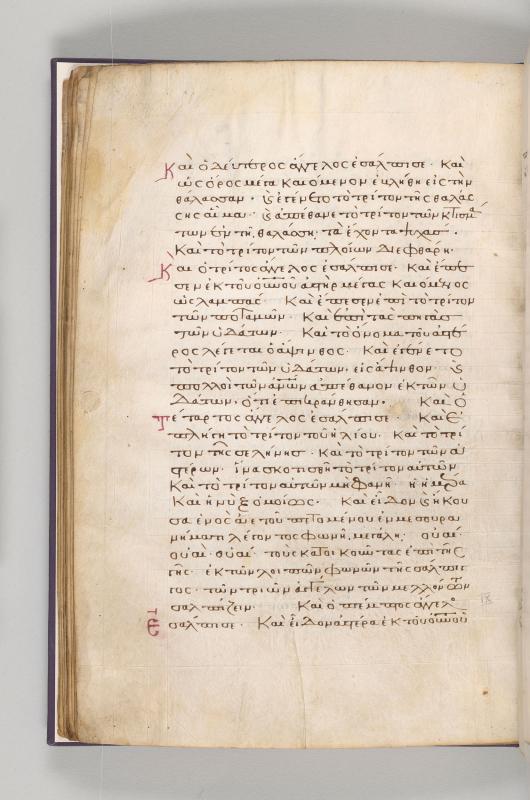 Καὶ ὁ δεύτερος ἄγγελος ἐσάλπισε· Καὶ
ὡς ὄρος μέγα καιόμενον ἐβλήθη εἰς τὴν
θάλασσαν· κ(αὶ) ἐγένετο τὸ τρίτον τῆς θαλάσ
σης αἷμα· κ(αὶ) ἀπέθανε τὸ τρίτον τῶν κτισμά
των τῶν τῇ θαλάσσῃ· τὰ ἔχοντα ψυχάς·
Καὶ τὸ τρίτον τῶν πλοίων διεφθάρη·
Καὶ ὁ τρίτος ἄγγελος ἐσάλπισε· Καὶ ἔπε
σεν ἐκ τοῦ οὐνοῦ ἀστὴρ μέγας καιόμενος
ὡς λαμπάς· Καὶ ἔπεσεν ἐπὶ τὸ τρίτον
τῶν ποταμῶν· Καὶ ἐπὶ τὰς πηγὰς
τῶν ὑδάτων· Καὶ τὸ ὄνομα τοῦ ἀστέ
ρος λέγεται ὁ ἄψινθος· Καὶ ἐγένετο
τὸ τρίτον τῶν ὑδάτων· εἰς ἄψινθον· κ(αὶ)
πολλοὶ τῶν ἀνων ἀπέθανον ἐκ τῶν ὑ
δάτων· ὅτι ἐπικράνθησαν· Καὶ ὁ
τέταρτος ἄγγελος ἐσάλπισε· Καὶ ἐ
πλήγη τὸ τρίτον τοῦ ἡλίου· Καὶ τὸ τρί
τον τῆς σελήνης· Καὶ τὸ τρίτον τῶν ἀ
στέρων· ἵνα σκοτισθῇ τὸ τρίτον αὐτῶν
Καὶ τὸ τρίτον αὐτῶν μὴ φανῇ· ἡ ἡμέρα
Καὶ ἡ νὺξ ὁμοίως· Καὶ εἶδον κ(αὶ) ἤκου
σα ἑνὸς ἀετοῦ πετομένου ἐν μεσουρα
νήματι λέγοντος φωνῇ μεγάλῃ· οὐαί·
οὐαί· οὐαί· τοὺς κατοικοῦντας ἐπὶ τῆς
γῆς· ἐκ τῶν λοιπῶν φωνῶν τῆς σάλπιγ
γος· τῶν τριῶν ἀγγέλων τῶν μελλόντων
σαλπίζειν· Καὶ ὁ πέμπτος ἄγγελο
ἐσάλπισε· Καὶ εἶδον ἀστέρα ἐκ τοῦ οὐνοῦ